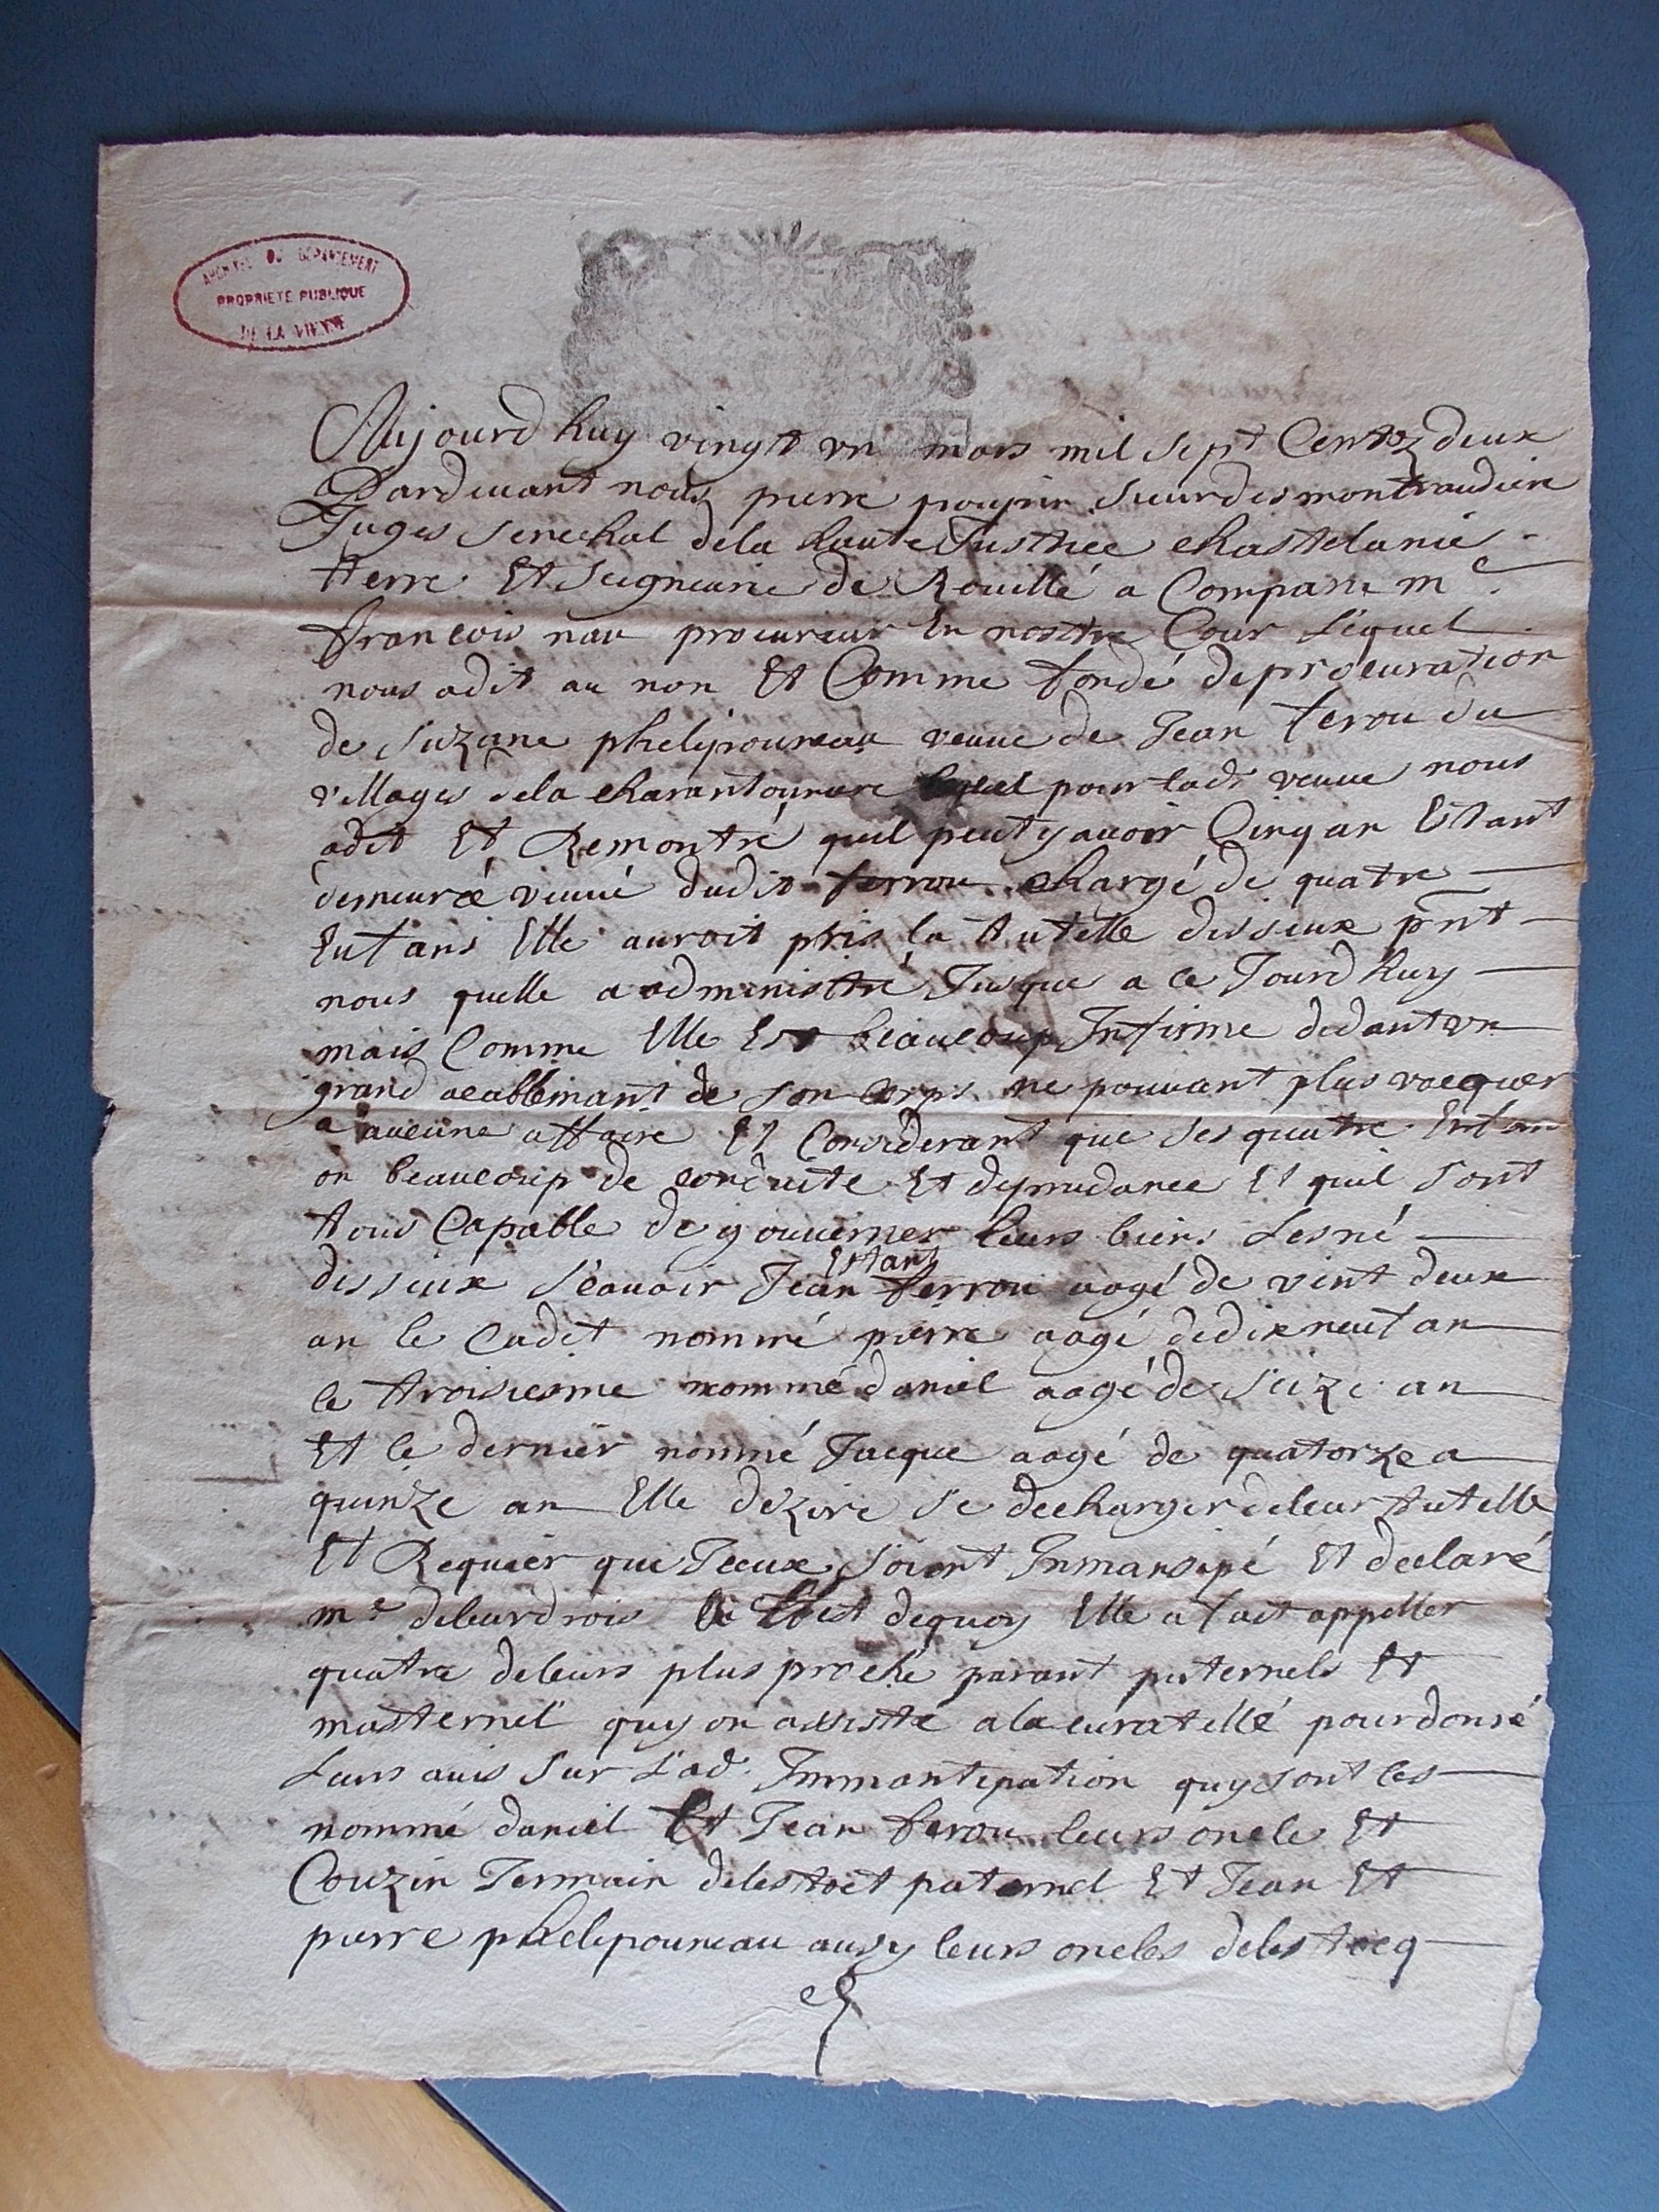 ARCHIVES DU DEPARTEMENT
PROPRIETE PUBLIQUE
DE LA VIENNE
Aujourd huy vingt un mars mil sept Centz deux
Pardevant nous pierre sieur des montraudiere
Juges senechal de la haute Justice chastelanie
terre Et seigneurie de Rouillé a Comparu me
francois nau procureur En nostre Cour Lequel
nous a dit au non Et Comme fondé de procuration
de suzane phelipouneau veuve de Jean ferou du
villages de la lequel pour lad. veuve nous
a dit Et Remontré quil peut y avoir Cinq an Estant
demeuré veuvé dudit ferrou chargé de quatre
Enfans Elle auroit pris la tutelle disseux pnt
nous quelle a administré Jusque a ce Jourd huy
mais Comme Elle Est beaucoup Infirme dedant un
grand acablemant de son corps ne pouvant plus vacquer
a aucune affaire Et Considerant que ses quatre Enfan
on beaucoup de conduite Et Et quil sont
tous Capable de gouverner leurs biens Lesné
disseux scavoir Jean Estant ferrou aagé de vint deux
an le Cadet nommé pierre aagé de dix neuf an
le troisiesme nommé daniel aagé de seize an
Et le dernier nommé Jacque aagé de quatorze a
quinze an Elle dezire se decharger de leur tutelle
Et Requier que Jceux soient Inmansipé Et declaré
me de leur drois dequoy Elle a fait appeller
quatre de leurs plus proche parant paternels Et
masternel quy on assisté a la curatellé pour donné
Leurs avis sur Lad. Immantipation quy sont les
nommé daniel Et Jean ferou leurs oncle Et
Couzin Jermain de lestoct paternel Et Jean Et
pierre phelipouneau ausy leurs oncles de lestocq